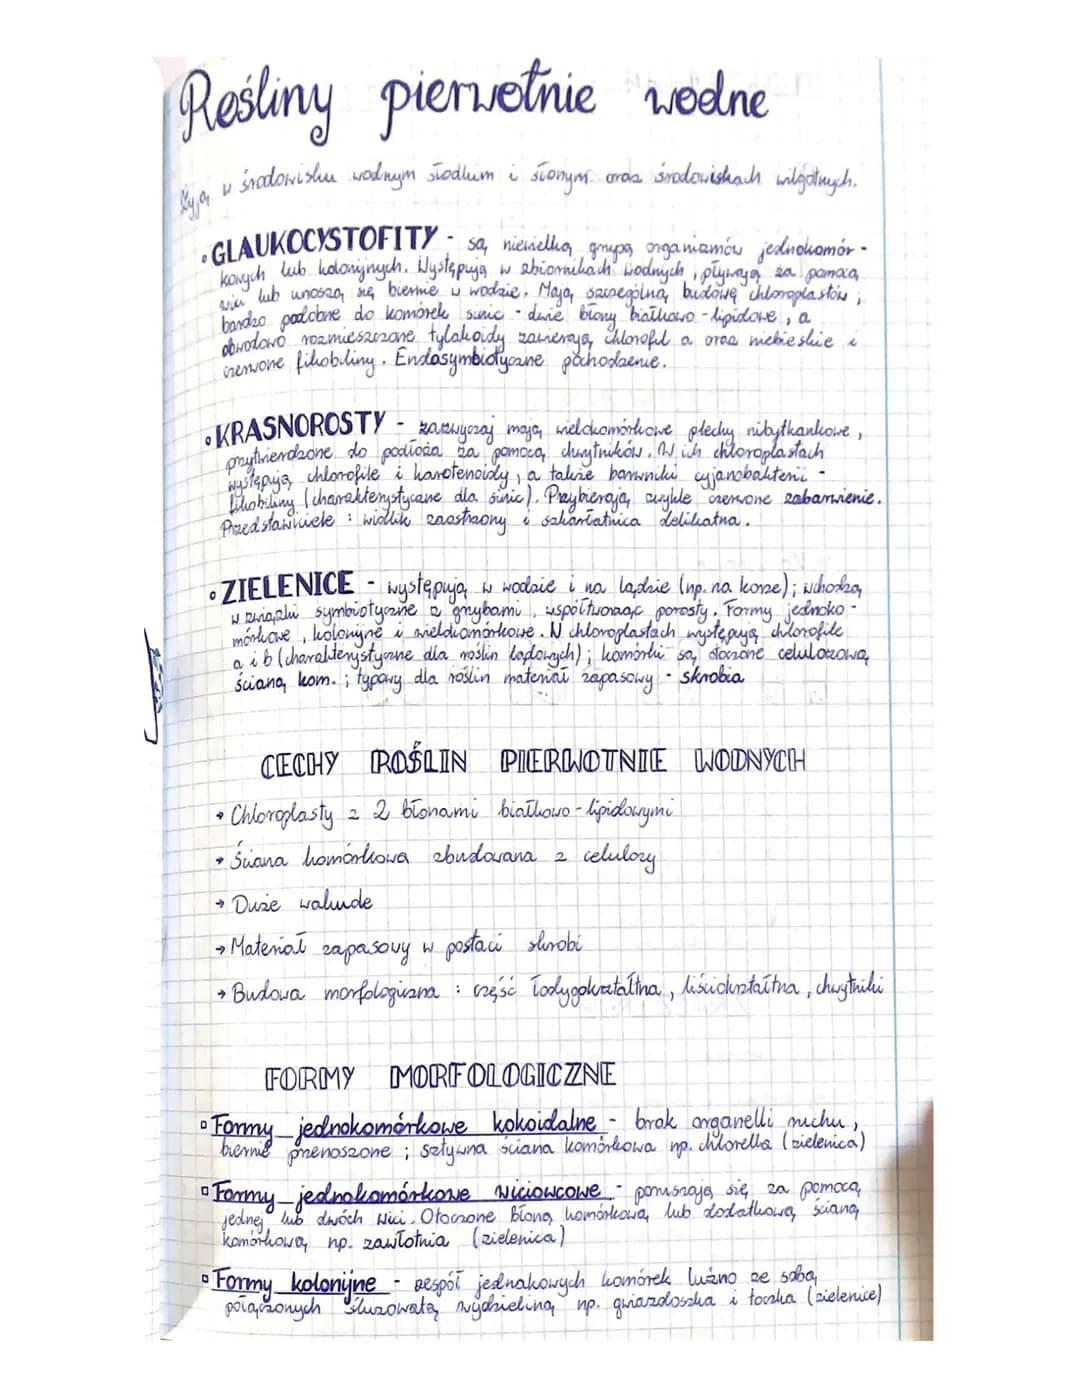 Rośliny pierwotnie wodne
Żyją w środowisku wodnym słodkim i słonym oraz środowiskach wilgotnych.
• GLAUKOCYSTOFITY - są niewielką grupą organizmów jednokomór-
kowych lub kolonijnych. Występują w zbiornikach wodnych, pływają za pomocą
wici lub unoszą się biernie w wodzie. Mają szczególną budowę chloroplastów;
bardzo podobne do komórek sinic - dwie błony białkowo-lipidowe, a
obwodowo rozmieszczone tylakoidy zawierają chlorofil a oraz niebieskie i
czerwone fikobiliny. Endosymbiotyczne pochodzenie.
• KRASNOROSTY - zazwyczaj mają wielokomórkowe plechy nibytkankowe,
przytwierdzone do podłoża za pomocą chwytników. W ich chloroplastach
występują chlorofile i karotenoidy, a także barwniki cyjanobakterii -
fikobiliny (charakterystyczne dla sinic). Przybierają zwykle czerwone zabarwienie.
Przedstawiciele: widlik zaostrzony i szkarłatnica delikatna.
• ZIELENICE - występują w wodzie i na lądzie (np. na korze); wchodzą
w związki symbiotyczne z grzybami, współtworząc porosty. Formy jednoko-
mórkowe, kolonijne i wielokomórkowe. W chloroplastach występują chlorofile
a i b (charakterystyczne dla roślin lądowych); komórki są otoczone celulozową
ścianą kom.; typowy dla roślin materiał zapasowy - skrobia
CECHY ROŚLIN PIERWOTNIE WODNYCH
→ Chloroplasty z 2 błonami białkowo-lipidowymi
→ Ściana komórkowa zbudowana z celulozy
→ Duże wakuole
→ Materiał zapasowy w postaci skrobi
→ Budowa morfologiczna: część łodygokształtna, liściokształtna, chwytniki
FORMY MORFOLOGICZNE
▫ Formy jednokomórkowe kokoidalne - brak organelli ruchu,
biernie przenoszone; sztywna ściana komórkowa np. chlorella (zielenica)
▫ Formy jednokomórkowe wiciowcowe - poruszają się za pomocą
jednej lub dwóch wici. Otoczone błoną komórkową lub dodatkową ścianą
komórkową np. zawłotnia (zielenica)
▫ Formy kolonijne - zespół jednakowych komórek luźno ze sobą
połączonych śluzowatą wydzieliną np. gwiazdoszka i toczka (zielenice)